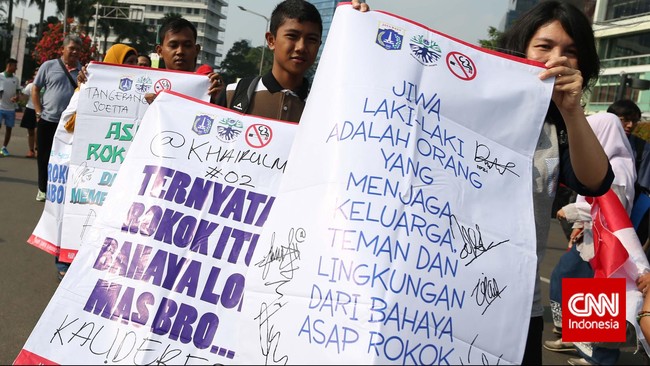 TANGERANG
SOETTA
AS
ROK
DA
MEME
@KHAIRUL M
#02
TERNYATA
ROKOK ITU
BAHAYA LO,
MAS BRO...
KAUDERE
JIWA
LAKI-LAKI
ADALAH ORANG
YANG
MENJAGA
KELUARGA,
TEMAN DAN
LINGKUNGAN
DARI BAHAYA
ASAP ROKOK
CNN
Indonesia